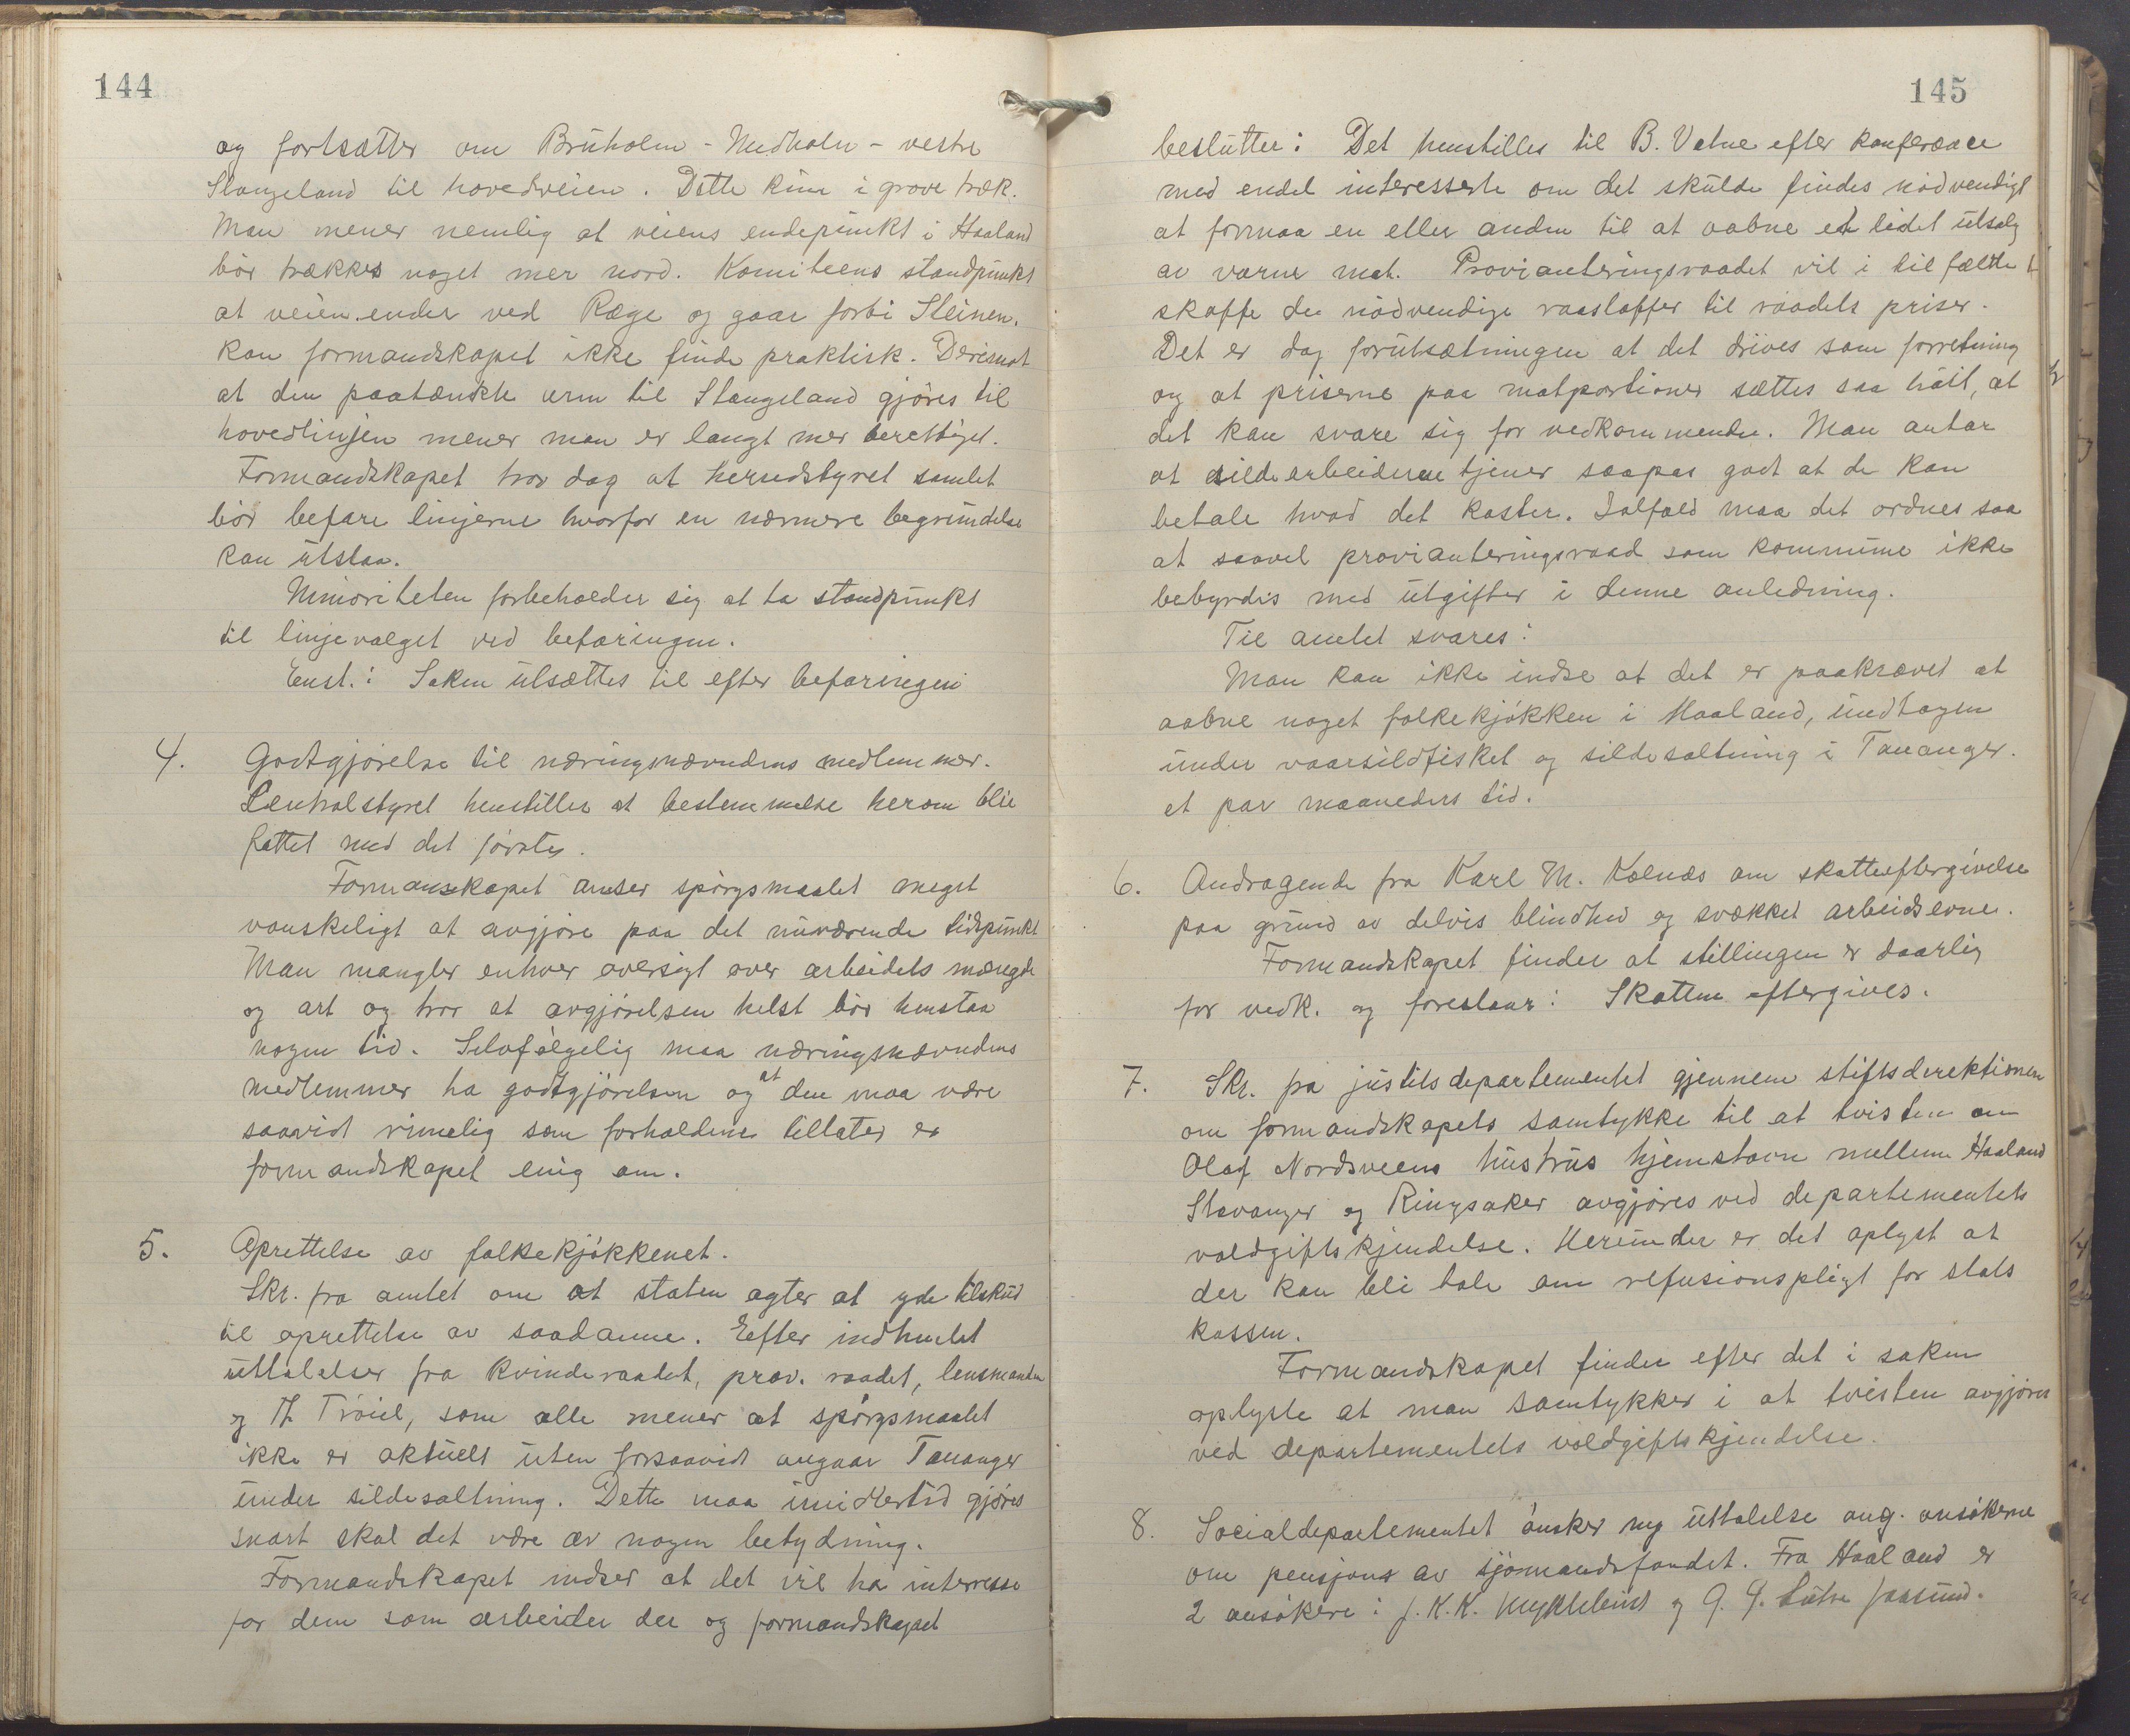 144
og fortsætter om Bruholm - Medholm - vestre
Stangeland til hovedveien. Dette kun i grove træk.
Man mener nemlig at veiens endepunkt i Haaland
bør trækkes noget mer nord. Komiteens standpunkt
at veien ender ved Ræge og gaar forbi Steinen.
kan formandskapet ikke finde praktisk. Derimot
at den paatænkte arm til Stangeland gjøres til
hovedlinjen mener man er langt mer berettiget.
Formandskapet tror dog at herredstyret samlet
bør befare linjerne hvorfor en nærmere begrundelse
kan utstaa.
Minoriteten forbeholder sig at ta standpunkt
til linjevalget ved befaringen.
Enst.: Saken utsættes til efter befaringen
4. Godtgjørelse til næringsnævndens medlemmer.
Centralstyret henstiller at bestemmelse herom blir
fattet med det første.
Formanskapet anser spørgsmaalet meget
vanskeligt at avgjøre paa det nuværende tidspunkt
Man mangler enhver oversigt over arbeidets mængde
og art og tror at avgjørelsen helst bør henstaa
nogen tid. Selvfølgelig maa næringsnævndens
medlemmer ha godtgjørelsen og at den maa være
saavidt rimelig som forholdene tillater er
formandskapet enig om.
5. Oprettelse av folkekjøkkenet.
Skr. fra amtet om at staten agter at yde tilskud
til oprettelse av saadanne. Efter indhentet
uttalelser fra kvinderaadet, prov. raadet, lensmanden
og Th Trøiel, som alle mener at spørgsmaalet
ikke er aktuelt uten forsaavidt angaar Tananger
under sildesaltning. Dette maa imidlertid gjøres
snart skal det være av nogen betydning.
Formandskapet indser at det vil ha interresse
for dem som arbeider der og formandskapet
145
beslutter: Det henstilles til B. Vatne efter konferance
med endel interesserte om det skulde findes nødvendigt
at formaa en eller anden til at aabne et lidet utsalg
av varm mat. Provianteringsraadet vil i tilfælde
skaffe de nødvendige raastoffer til raadets priser.
Det er dog forutsætningen at det drives som forretning
og at priserne paa matportioner sættes saa høit, at
det kan svare sig for vedkommende. Man antar
at sildearbeiderne tjener saapas godt at de kan
betale hvad det koster. Ialfald maa det ordnes saa
at saavel provianteringsraad som kommune ikke
bebyrdes med utgifter i denne anledning.
Til amtet svares:
Man kan ikke indse at det er paakrævet at
aabne noget folkekjøkken i Haaland, undtagen
under vaarsildfisket og sildesaltning i Tananger.
et par maaneders tid.
6. Andragende fra Karl M. Kolnæs om skatteeftergivelse
paa grund av delvis blindhed og svækket arbeidsevne.
Formandskapet finder at stillingen er daarlig
for vedk. og foreslaar: Skatten eftergives.
7. Skr. fra justitsdepartementet gjennem stiftsdirektionen
om formandskapets samtykke til at tvisten om
Olaf Nordsveens hustrus hjemstavn mellem Haaland
Stavanger og Ringsaker avgjøres ved departementets
voldgiftskjendelse. Herunder er det oplyst at
der kan bli tale om refusionspligt for stats
kassen.
Formandskapet finder efter det i saken
oplyste at man samtykker i at tvisten avgjøres
ved departementets voldgiftskjendelse.
8. Socialdepartementet ønsker ny uttalelse ang. ansøkerne
om pensjons av sjømandsfondet. Fra Haaland er
2 ansøkere: J. K. K. Myklebust og